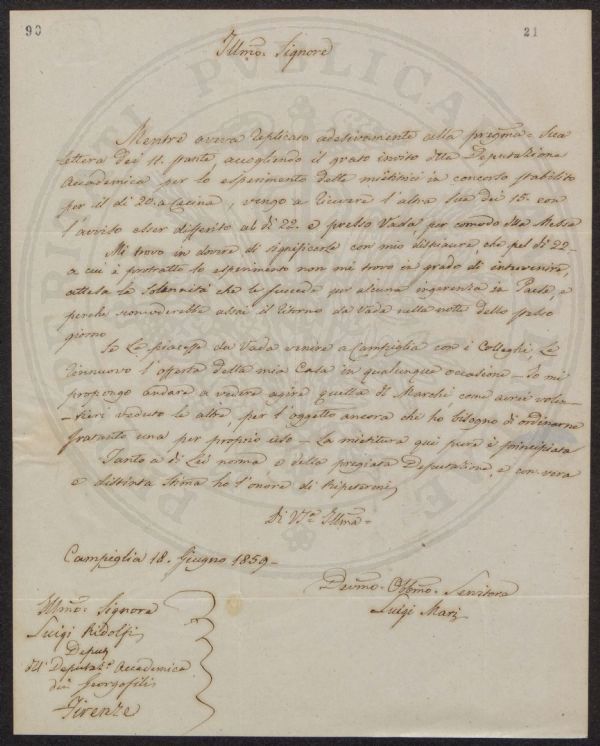 90
21
Illmo. Signore
Mentre aveva replicato adesivamente alla pregma. Sua
lettera dei 11. stante, accogliendo il grato invito dlla Deputazione
Accademica per lo esperimento delle mietitrici in concorso stabilito
per il dì 20. a Cecina, vengo a ricevere l'altra Sua dei 15. con
l'avviso esser differito al dì 22. e presso Vada per comodo dlla Messe
Mi trovo in dovere di significarle con mio dispiacere che pel dì 22
a cui è protratto lo esperimento non mi trovo in grado di intervenire,
attesa la Solennità che le succede per alcuna ingerenza in Paese, e
perchè assai il ritorno da Vada nella notte dello stesso
giorno
Se Le piacesse da Vada venire a Campiglia con i Colleghi, Le
rinnuovo l'offerta della mia Casa in qualunque occasione - Io mi
propongo andare a vedere agire quella di Marchi come avrei volen-
tieri veduto le altre, per l'oggetto ancora che ho bisogno di ordinarne
frattanto una per proprio uso - La mietitura qui pure è principiata
Tanto a di Lei norma e della pregiata Deputazione, e con vera
e distinta stima ho l'onore di ripetermi
Di VSa. Illma.
Campiglia 18. Giugno 1859-
Devmo. Obbmo. Servitore
Luigi Mari
Illmo. Signore
Luigi Ridolfi
Deput
dll Deputaze. Accademica
dei Georgofili
Firenze